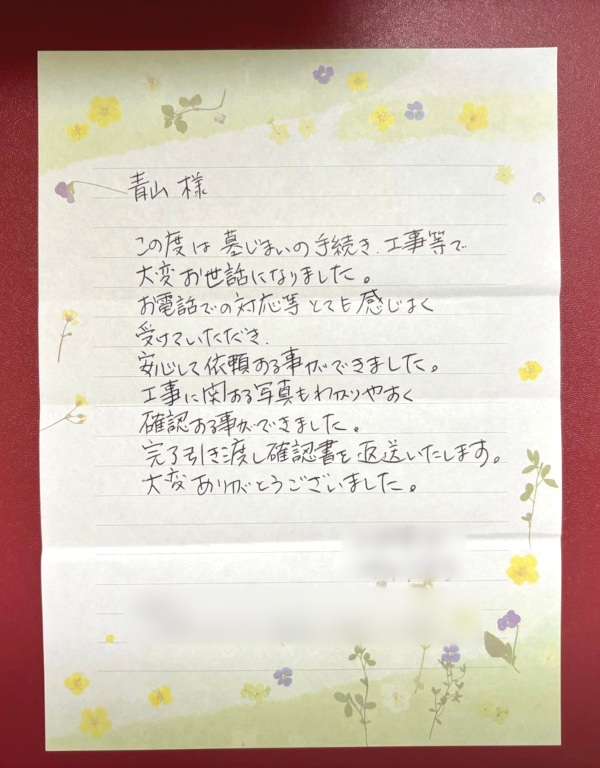 青山 様
この度は墓じまいの手続き、工事等で
大変お世話になりました。
お電話での対応等とても感じよく
受けていただき、
安心して依頼する事ができました。
工事に関する写真もわかりやすく
確認する事ができました。
完了引き渡し確認書を返送いたします。
大変ありがとうございました。